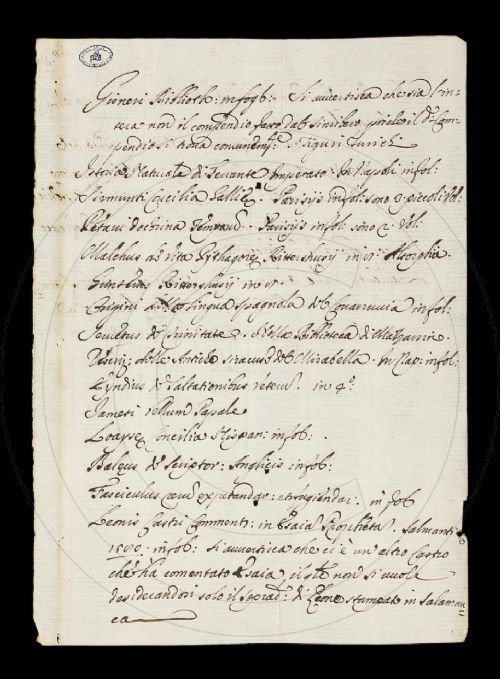 Gesneri Biblioth: in fogl: Si avvertisca che sia l'in-
tera non il compendio fatto dal Simlero, perche il d.º Com-
pendio si trova comunem.te. Tiguri
Istoria Naturale di Ferrante Imperato. In Napoli in fol:
Sirmundi Concilia Galliæ. Parisijs in fol: sono 3. piccoli Vol:
Petavii doctrina temporum. Parisijs in fol: sono 2. Vol:
Malchus de Vita Pythagoræ Rittershusij in 4º Altorphij.
Rittershusij in 4º
Origini della lingua Spagnola del Covarruvia in fol:
de Trinitate. della Biblioteca di Mazzarini.
delle Antiche Siracuse del Mirabella. In Nap: in fol:
de Saltationibus veterum. in 4º.
Iameti vellum Papale
Loaysæ Concilia Hispan: in fol: .
Baleus de Scriptor: Anglicis in fol:
Fasciculus rerum expetendar: et fugiendar: in fol
Leonis Castri Comment: in Esaiã Prophetã. Salmanti:
1570. in fol: si avvertisca che ci è un altro Castro
che ha comentato Esaia, il q.le non si vuole
desiderandosi solo il soprad: di Leone stampato in Salaman
ca